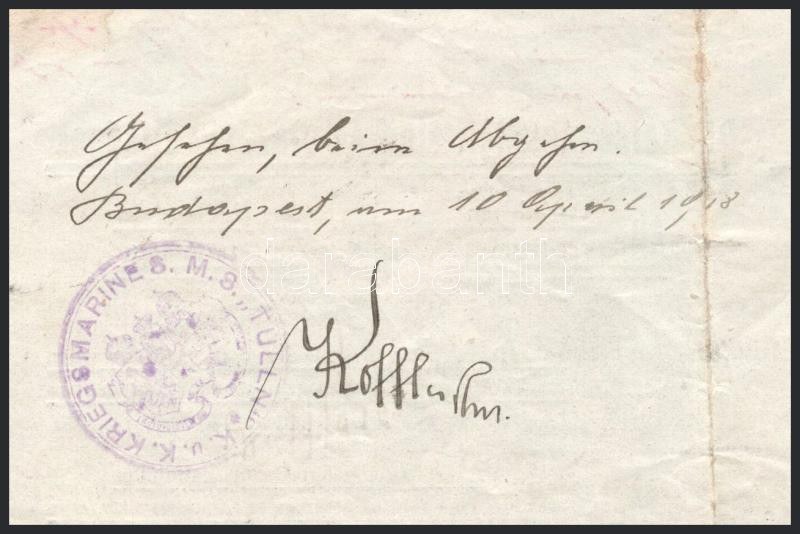 Gesehen, beim Abgehen.
Budapest, am 10 April 1918
K. u. K. KRIEGSMARINE S. M. S. „TULLN“ *
darabanth